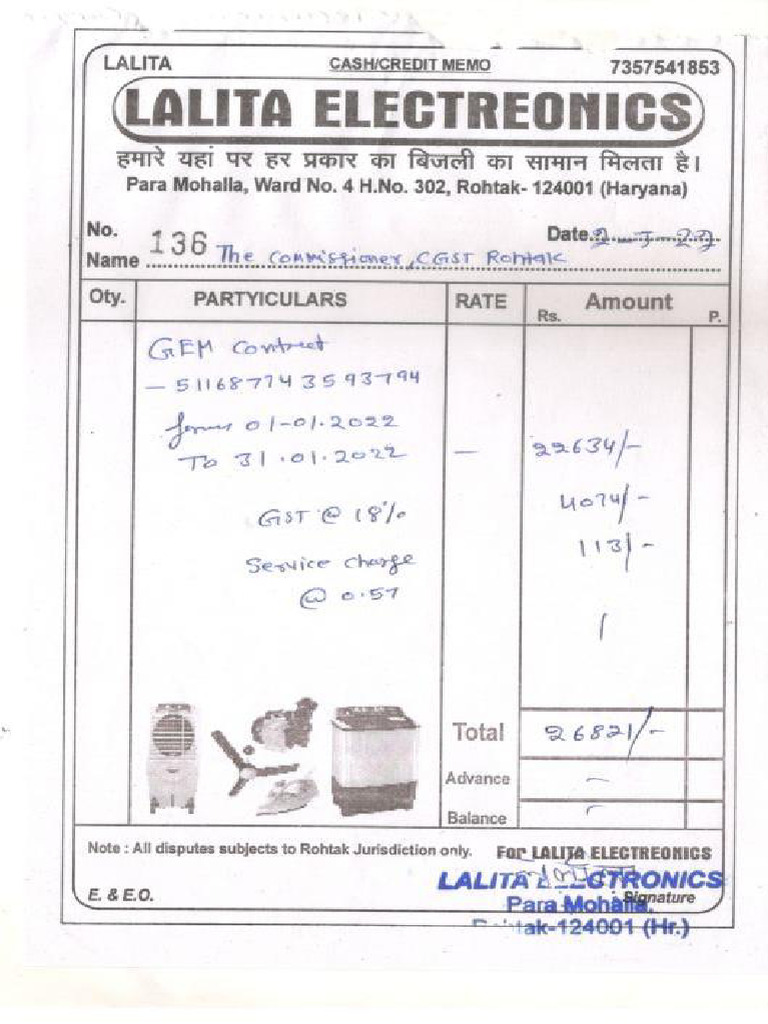 LALITA CASH/CREDIT MEMO 7357541853
LALITA ELECTREONICS
हमारे यहां पर हर प्रकार का बिजली का सामान मिलता है।
Para Mohalla, Ward No. 4 H.No. 302, Rohtak- 124001 (Haryana)
No. 136 Date
Name The Commissioner, CGST Rohtak
Qty. PARTYICULARS RATE Amount
Rs. P.
GEM Contract
- 511687743593794
01-01-2022
To 31.01.2022 - 22634/-
GST @ 18% 4074/-
Service charge 113/-
@ 0.5%
Total 26821/-
Advance -
Balance -
Note : All disputes subjects to Rohtak Jurisdiction only. For LALITA ELECTREONICS
LALITA ELECTRONICS
E. & E.O. Signature
Para Mohalla,
124001 (Hr.)